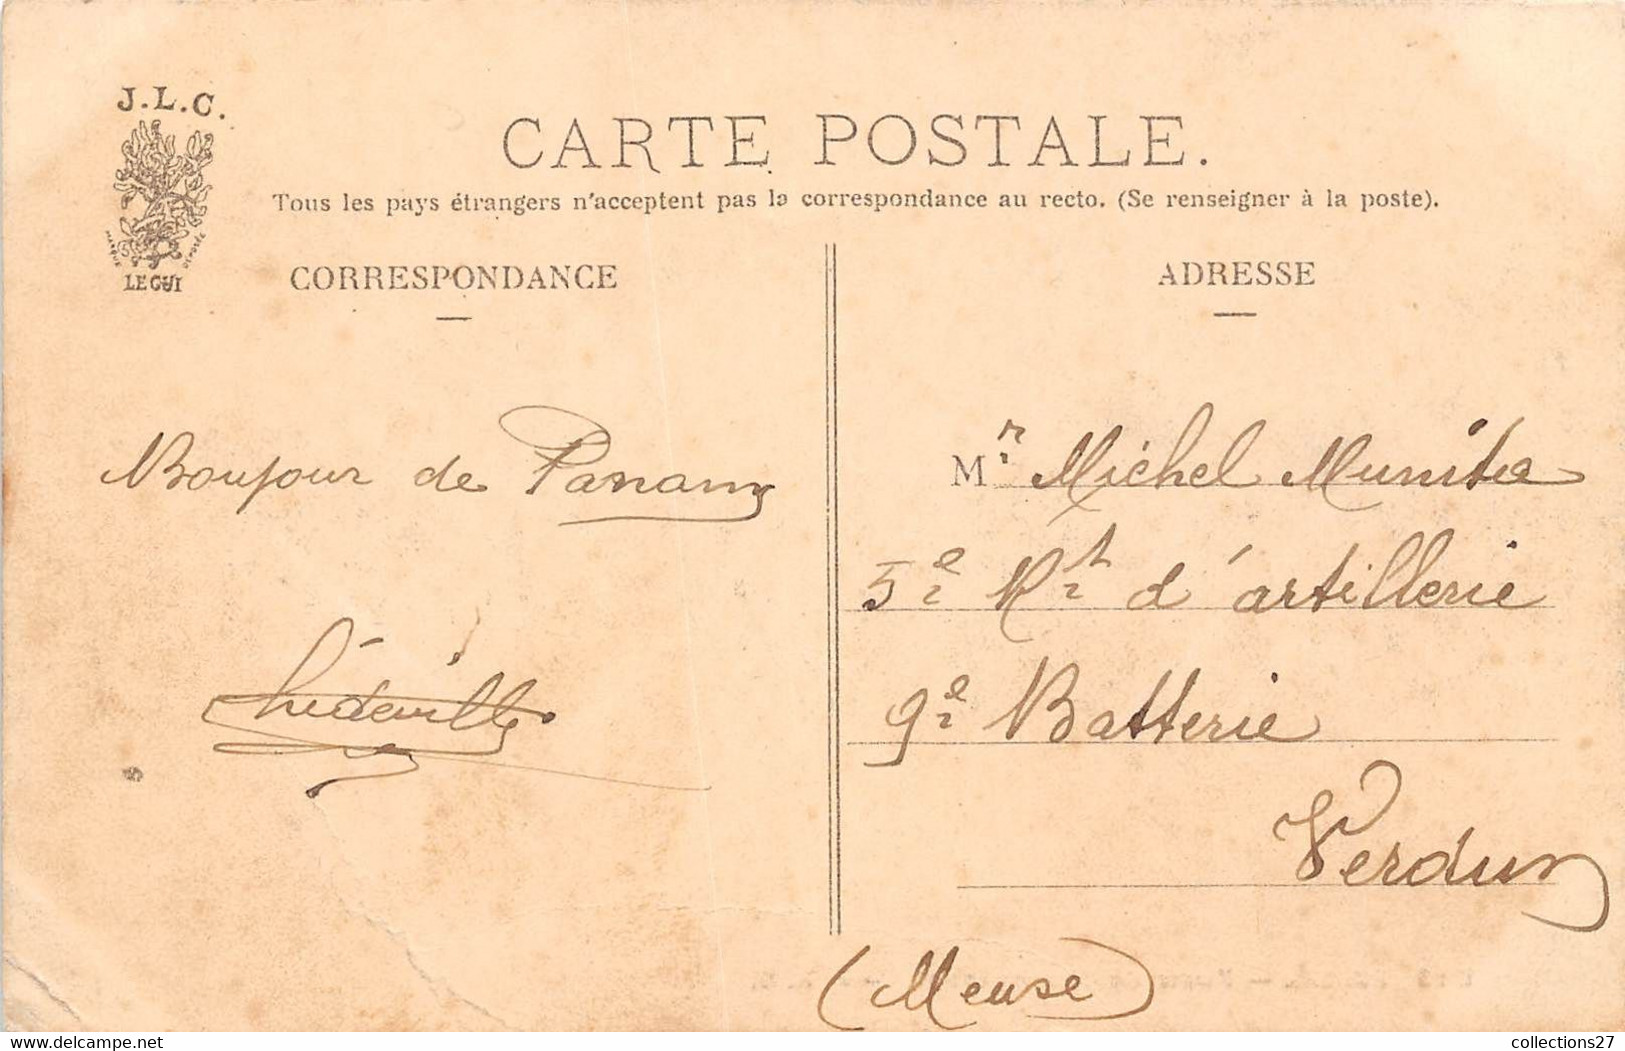 J.L.C.
MARQUE DÉPOSÉE
LE GUI
CARTE POSTALE.
Tous les pays étrangers n'acceptent pas la correspondance au recto. (Se renseigner à la poste).
CORRESPONDANCE
Bonjour de Panam
ADRESSE
Mr Michel
5e Rt d'artillerie
9e Batterie
Verdun
(Meuse)
collections27